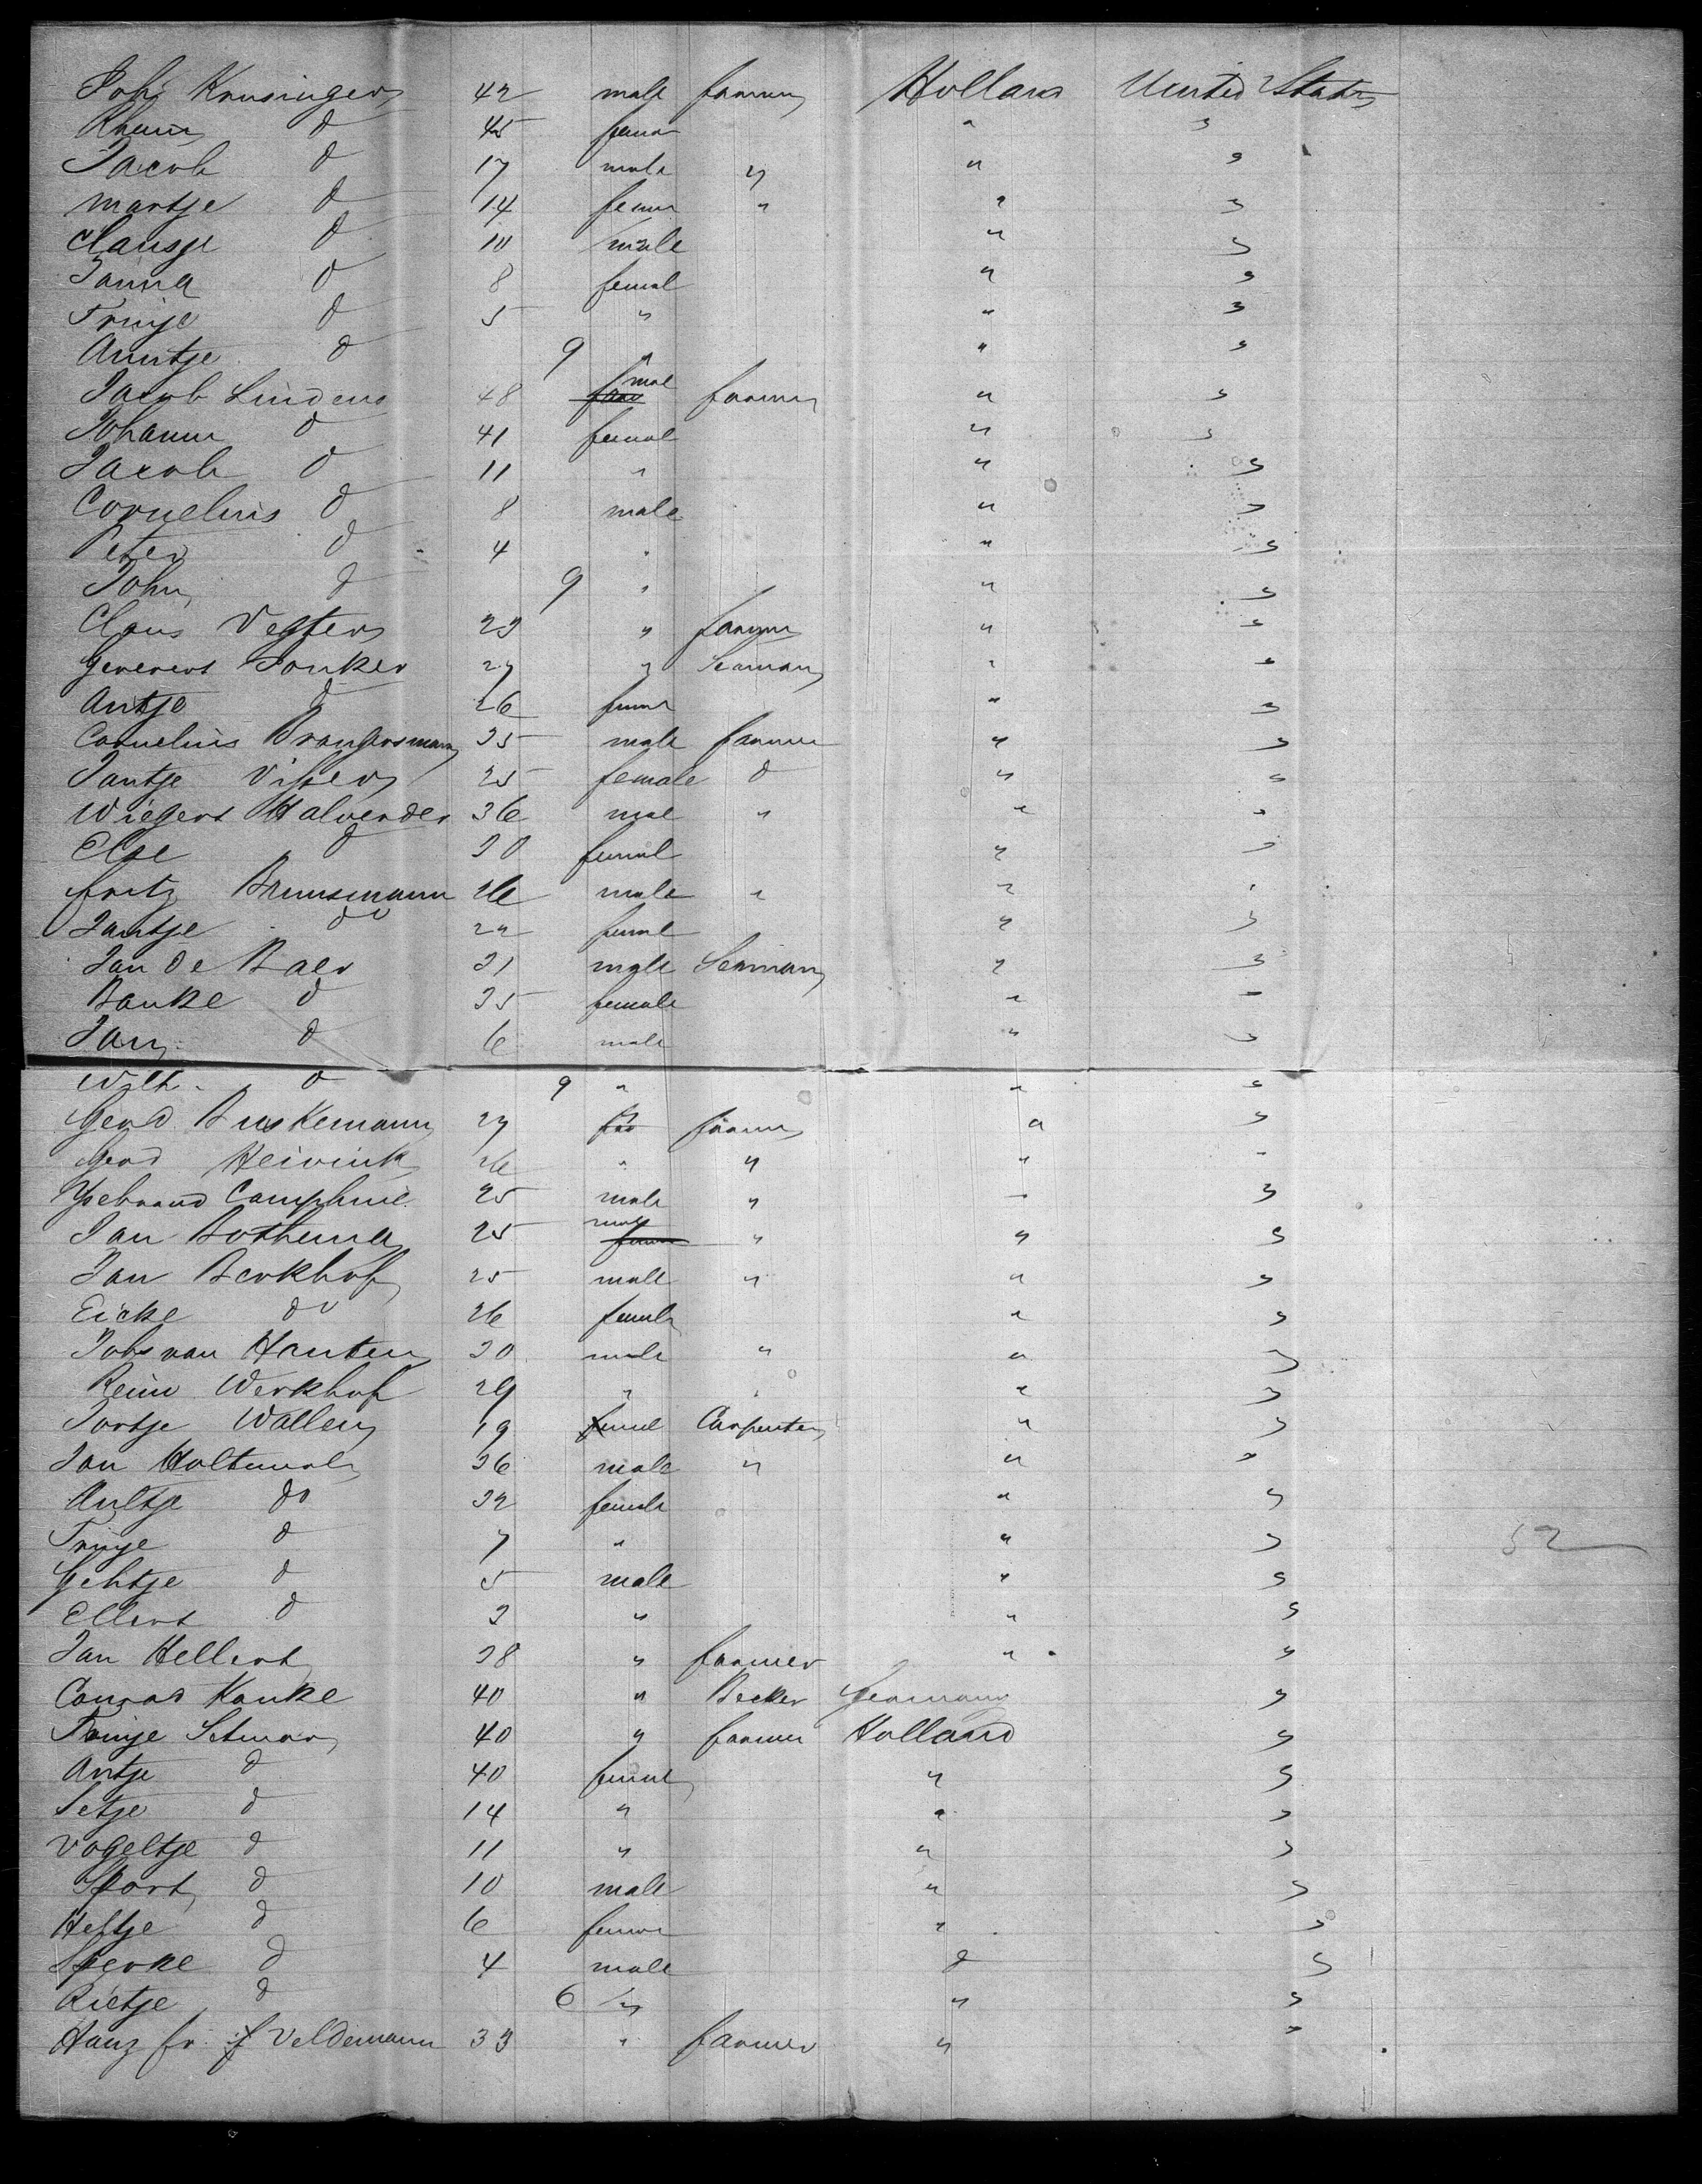 Joh. Krusinger 42 male farmer Holland United States
d 45 femal " "
Jacob d 17 male " " "
Martje d 14 femal " " "
Clausje d 10 male " "
Janna d 8 femal " "
Trinje d 5 " " "
Anntje d 9 " " "
Jacob Lindens 48 male farmer " "
Johann d 41 femal " "
Jacob d 11 " " "
Cornelius d 8 male " "
Peter d 4 " " "
John d 9 " " "
Claus Vegter 23 " farmer " "
Jonker 27 " Seaman " "
Antje d 26 femal " "
Cornelius 35 male farmer " "
Jantje Visser 25 female d " "
Wiegert Halvender 36 mal " " "
Else d 30 femal " "
fritz Brunsmann 26 male " " "
Jantje do 22 femal " "
Jan De Baer 31 male Seaman " "
Bauke d 35 female " "
Jan d 6 male " "
Wilh. d 9 " " "
Gerd Buskemann 27 farmer " "
Gerd Reivink 26 " " " "
Ysebrand 25 male " " "
Jan Bothema 25 male " " "
Jan Berkhof 25 male " " "
Eicke do 26 femal " "
Johs van Hauten 30 male " " "
Reim Werkhof 29 " " " "
Tortje Wallen 19 femel Carpenter " "
Jan 36 male " " "
Aultje do 32 female " "
Trinje d 7 " " "
Gehtje d 5 male " "
Ellert d 3 " " "
Jan Hellert 38 " farmer " "
Conrad Kanke 40 " Becker Germany "
Trinje 40 " farmer Holland "
Antje d 40 femal " "
Setje d 14 " " "
Vogeltje d 11 " " "
d 10 male " "
Heltje d 6 femal " "
d 4 male d "
Rietje d 6 " " "
Hanz fr. Veldemann 33 " farmer " "
52